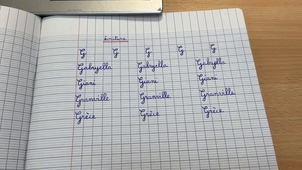 Écriture
G G G G G
Gabryella Gabryella Gabryella
Giani Giani Giani
Granville Granville Granville
Grèce Grèce Grèce